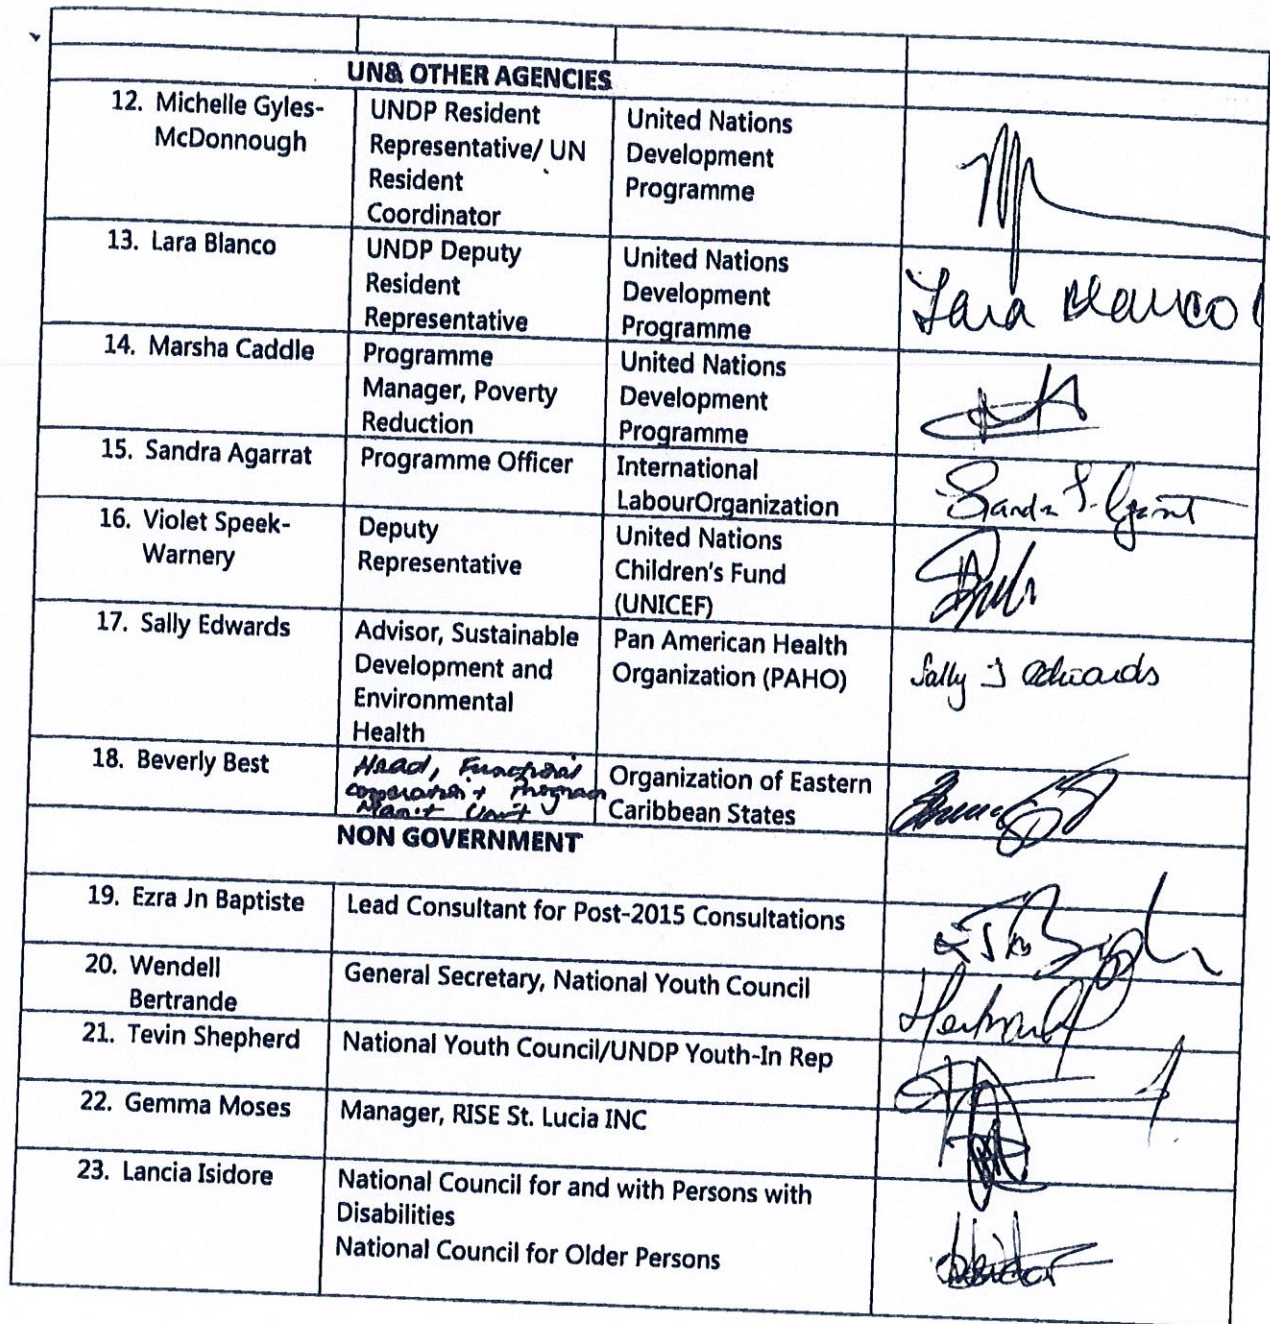 UN& OTHER AGENCIES
12. Michelle Gyles-
McDonnough
UNDP Resident
Representative/ UN
Resident
Coordinator
United Nations
Development
Programme
13. Lara Blanco
UNDP Deputy
Resident
Representative
United Nations
Development
Programme
Lara Blanco
14. Marsha Caddle
Programme
Manager, Poverty
Reduction
United Nations
Development
Programme
15. Sandra Agarrat
Programme Officer
International
LabourOrganization
16. Violet Speek-
Warnery
Deputy
Representative
United Nations
Children's Fund
(UNICEF)
17. Sally Edwards
Advisor, Sustainable
Development and
Environmental
Health
Pan American Health
Organization (PAHO)
Sally J Edwards
18. Beverly Best
Head, Functional
Unit
Organization of Eastern
Caribbean States
NON GOVERNMENT
19. Ezra Jn Baptiste
Lead Consultant for Post-2015 Consultations
20. Wendell
Bertrande
General Secretary, National Youth Council
21. Tevin Shepherd
National Youth Council/UNDP Youth-In Rep
22. Gemma Moses
Manager, RISE St. Lucia INC
23. Lancia Isidore
National Council for and with Persons with
Disabilities
National Council for Older Persons